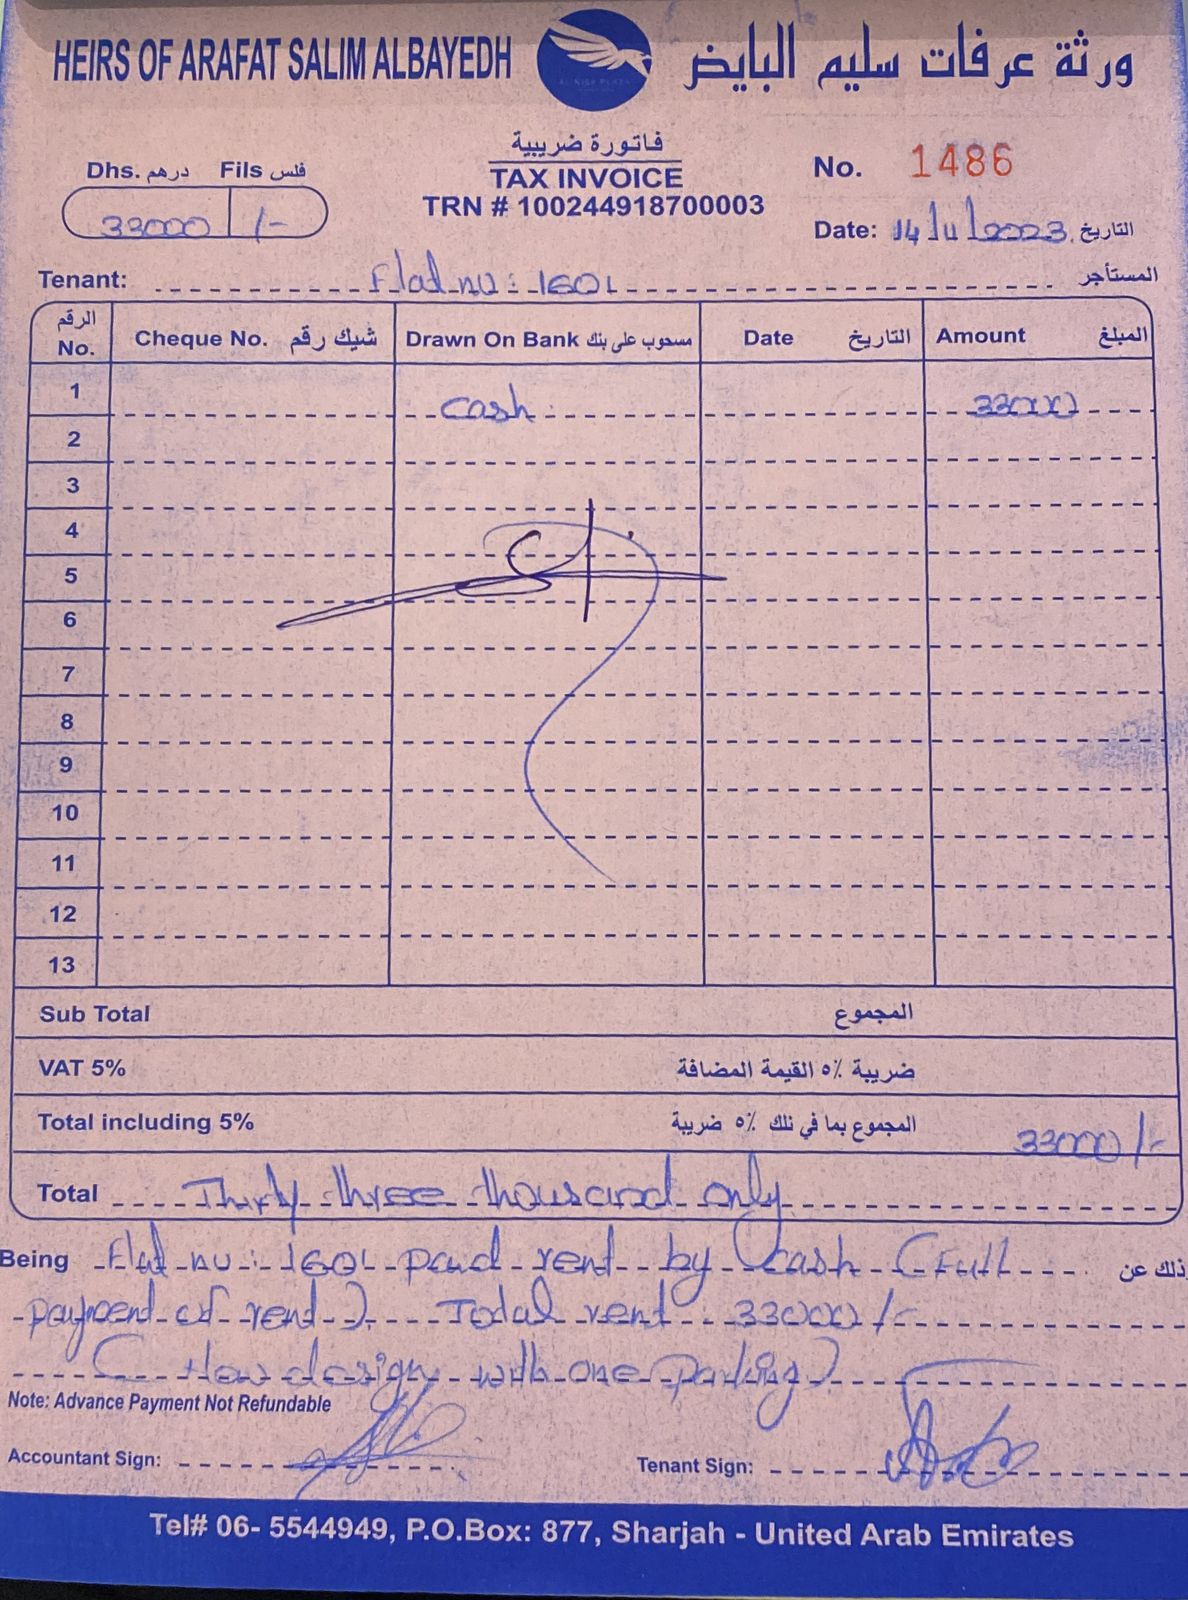 HEIRS OF ARAFAT SALIM ALBAYEDH
ورثة عرفات سليم البايض
فاتورة ضريبية
TAX INVOICE
TRN # 100244918700003
Dhs. درهم Fils فلس
33000 /-
No. 1486
Date: 14/11/2023 التاريخ
Tenant: Flat no: 1601 المستأجر
الرقم No. Cheque No. شيك رقم Drawn On Bank مسحوب على بنك Date التاريخ Amount المبلغ
1 cash 33000
2
3
4
5
6
7
8
9
10
11
12
13
Sub Total المجموع
VAT 5% ضريبة ٥٪ القيمة المضافة
Total including 5% المجموع بما في ذلك ٥٪ ضريبة 33000/-
Total Thirty three thousand only
Being Flat no: 1601 paid rent by cash (Full وذلك عن
payment of rent). Total rent 33000/-
design with one parking)
Note: Advance Payment Not Refundable
Accountant Sign: Tenant Sign:
Tel# 06- 5544949, P.O.Box: 877, Sharjah - United Arab Emirates